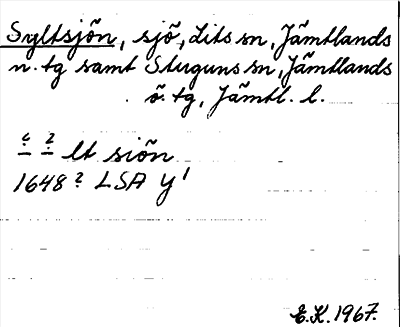 Syltsjön, sjö, Lits sn, Jämtlands
n. tg samt Stuguns sn, Jämtlands
ö. tg, Jämtl. l.
lt siön
1648? LSA Y¹
E.K. 1967.